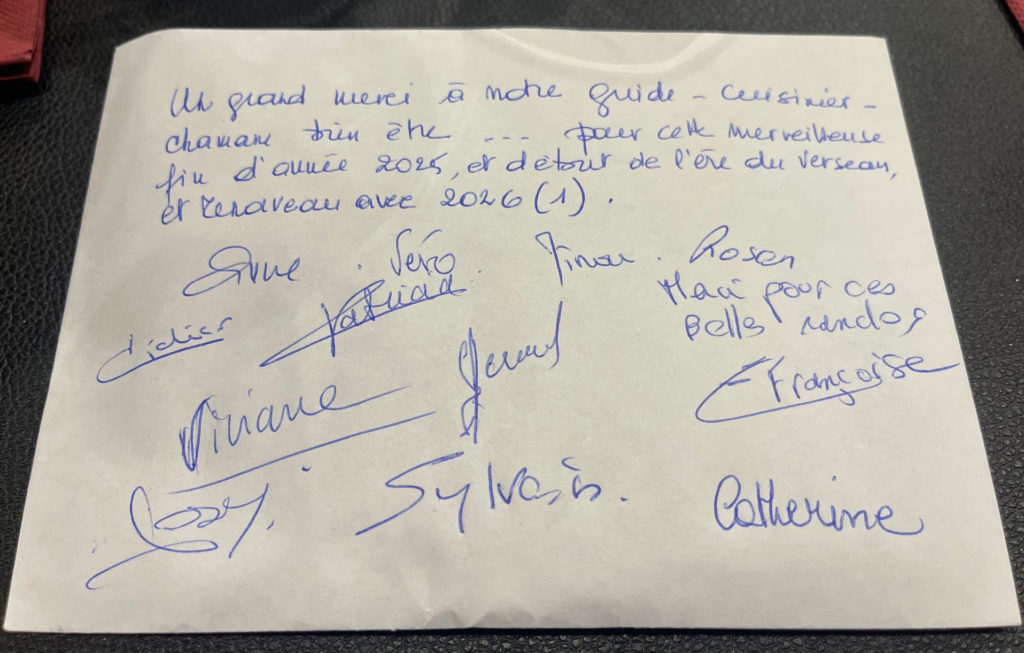 Un grand merci à notre guide - cuisinier -
chamane bien être ... pour cette merveilleuse
fin d'année 2025, et détour de l'ère du verseau,
et renouveau avec 2026 (1).
Véro Rosen
Merci pour ces
Belles randos
Didier
Françoise
Viviane
Josy. Sylvain. Catherine